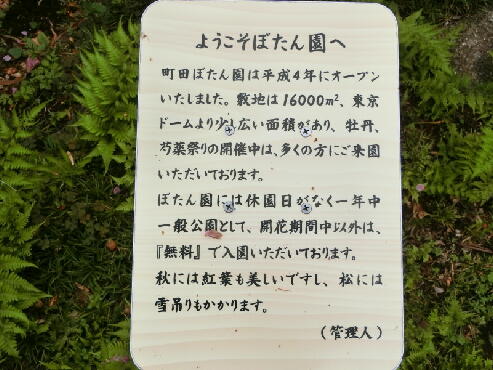 ようこそぼたん園へ
町田ぼたん園は平成4年にオープン
いたしました。敷地は16000m²、東京
ドームより少し広い面積があり、牡丹、
芍薬祭りの開催中は、多くの方にご来園
いただいております。
ぼたん園には休園日がなく一年中
一般公園として、開花期間中以外は、
『無料』で入園いただいております。
秋には紅葉も美しいですし、松には
雪吊りもかかります。
(管理人)